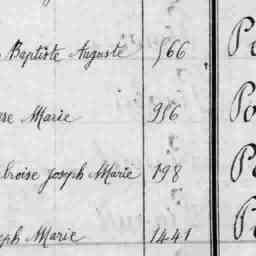 Baptiste Auguste 566
Marie 956
broise Joseph Marie 198
eph Marie 1441